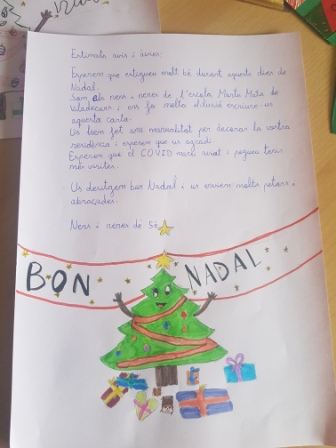 Estimats avis i àvies:
Esperem que estigueu molt bé durant aquests dies de
Nadal.
Som els nens i nenes de l'escola Marta Mata de
Viladecans i ens fa molta il·lusió escriure-us
aquesta carta.
Us hem fet una manualitat per decorar la vostra
residència i esperem que us agradi.
Esperem que el COVID marxi aviat i pugueu tenir
més visites.
Us desitgem bon Nadal i us enviem molts petons i
abraçades.
Nens i nenes de 5è
BON NADAL